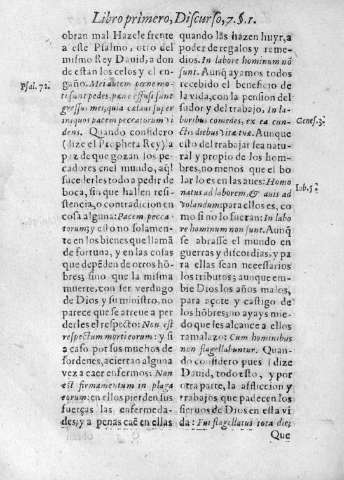 Libro primero, Discurso, 7. §. 1.
obran mal Hazele frente
a este Psalmo, otro del
mismo Rey Dauid, a don
de estan los celos y el en-
Psal. 72.
gaño. Mei autem pene mo-
ti sunt pedes, pene effusi sunt
gressus mei, quia zelaui super
iniquos pacem peccatorum vi
dens. Quando considero
(dize el Propheta Rey) a la
paz de que gozan los pe-
cadores en el mundo, aql
sucederles todo a pedir de
boca, sin que hallen resis-
tencia, o contradicion en
cosa alguna: Pacem pecca-
torum; y esto no solamen-
te en los bienes que llamã
de fortuna, y en las cosas
que depẽden de otros hõ-
bres, sino que la misma
muerte, con ser verdugo
de Dios y su ministro, no
parece que se atreue a per
derles el respecto: Non est
respectum morti eorum: y si
a caso por sus muchos de-
sordenes, aciertan alguna
vez a caer enfermos: Non
est firmamentum in plaga
eorum; en ellos pierden sus
fuerças las enfermeda-
des, y a penas caẽ en ellas
quando lâs hazen huyr, a
poder de regalos y reme-
dios. In labore hominum nõ
sunt. Aunq̃ ayamos todos
recebido el beneficio de
la vida, con la pension del
sudor y del trabajo. In la-
boribus comedes, ex ea cun-
Genes. 3.
ctis diebus vitæ tuæ. Aunque
esto del trabajar sea natu-
ral y propio de los hom-
bres, no menos que el bo
lar lo es en las aues: Homo
Iob. 5.
natus ad laborem, & auis ad
volandum: para ellos es, co
mo si no lo fueran: In labo
re hominum non sunt. Aunq̃
se abrasse el mundo en
guerras y discordias, y pa
ra ellas sean necessarios
los tributos; aunque em-
bie Dios los años malos,
para açote y castigo de
los hõbres; no ayays mie-
do que les alcance a ellos
ramalazo: Cum hominibus
non flagellabuntur. Quan-
do considero pues (dize
Dauid, todo esto, y por
otra parte, la affliccion y
trabajos que padecen los
sieruos de Dios en esta vi
da: Fui flagellatus tota die;
Que